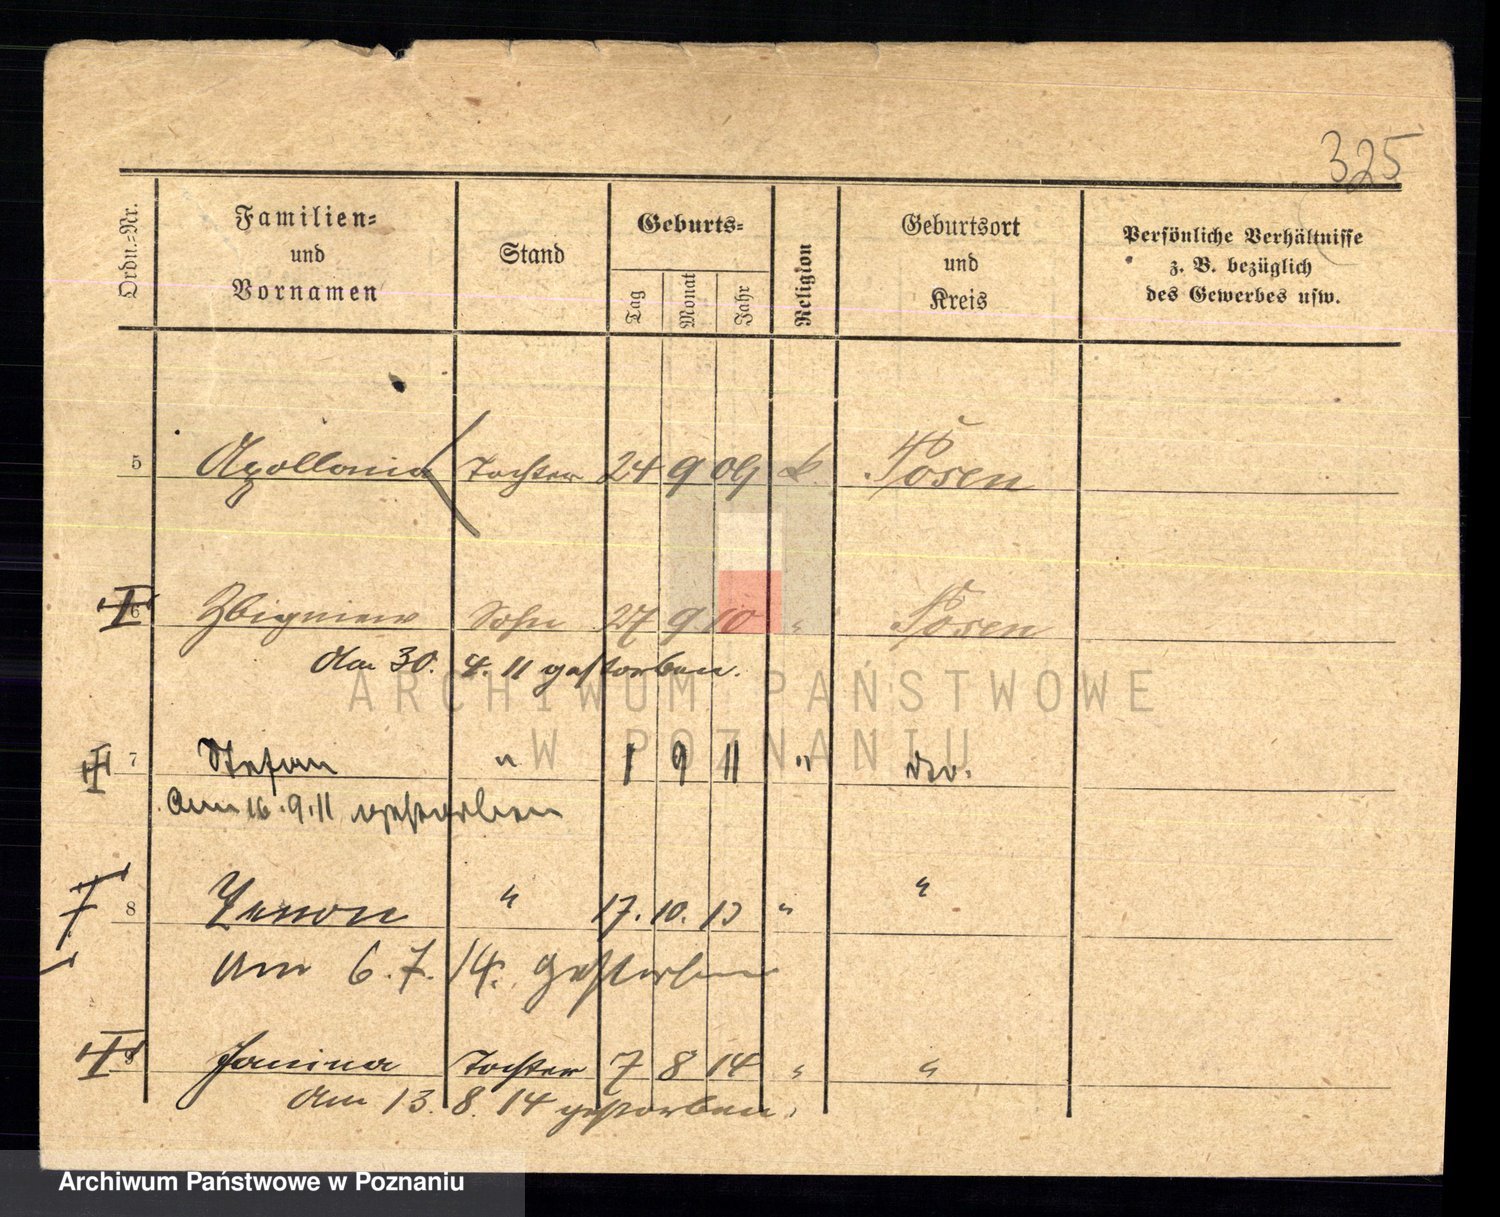 325
Ordn.-Nr.
Familien-
und
Vornamen
Stand
Geburts-
Tag
Monat
Jahr
Religion
Geburtsort
und
Kreis
Persönliche Verhältnisse
z. B. bezüglich
des Gewerbes usw.
5 Apollonia Tochter 24 9 09 k. Posen
6 Zbigniew Sohn 27 9 10 " Posen
Am 30. 4. 11 gestorben.
7 Stefan " 1 9 11 " do.
Am 16.9.11 gestorben
8 Zenon " 17. 10. 13 " "
Am 6.7.14. gestorben
9 Janina Tochter 7 8 14 " "
Am 13. 8. 14 gestorben.
ARCHIWUM PAŃSTWOWE
W POZNANIU
Archiwum Państwowe w Poznaniu